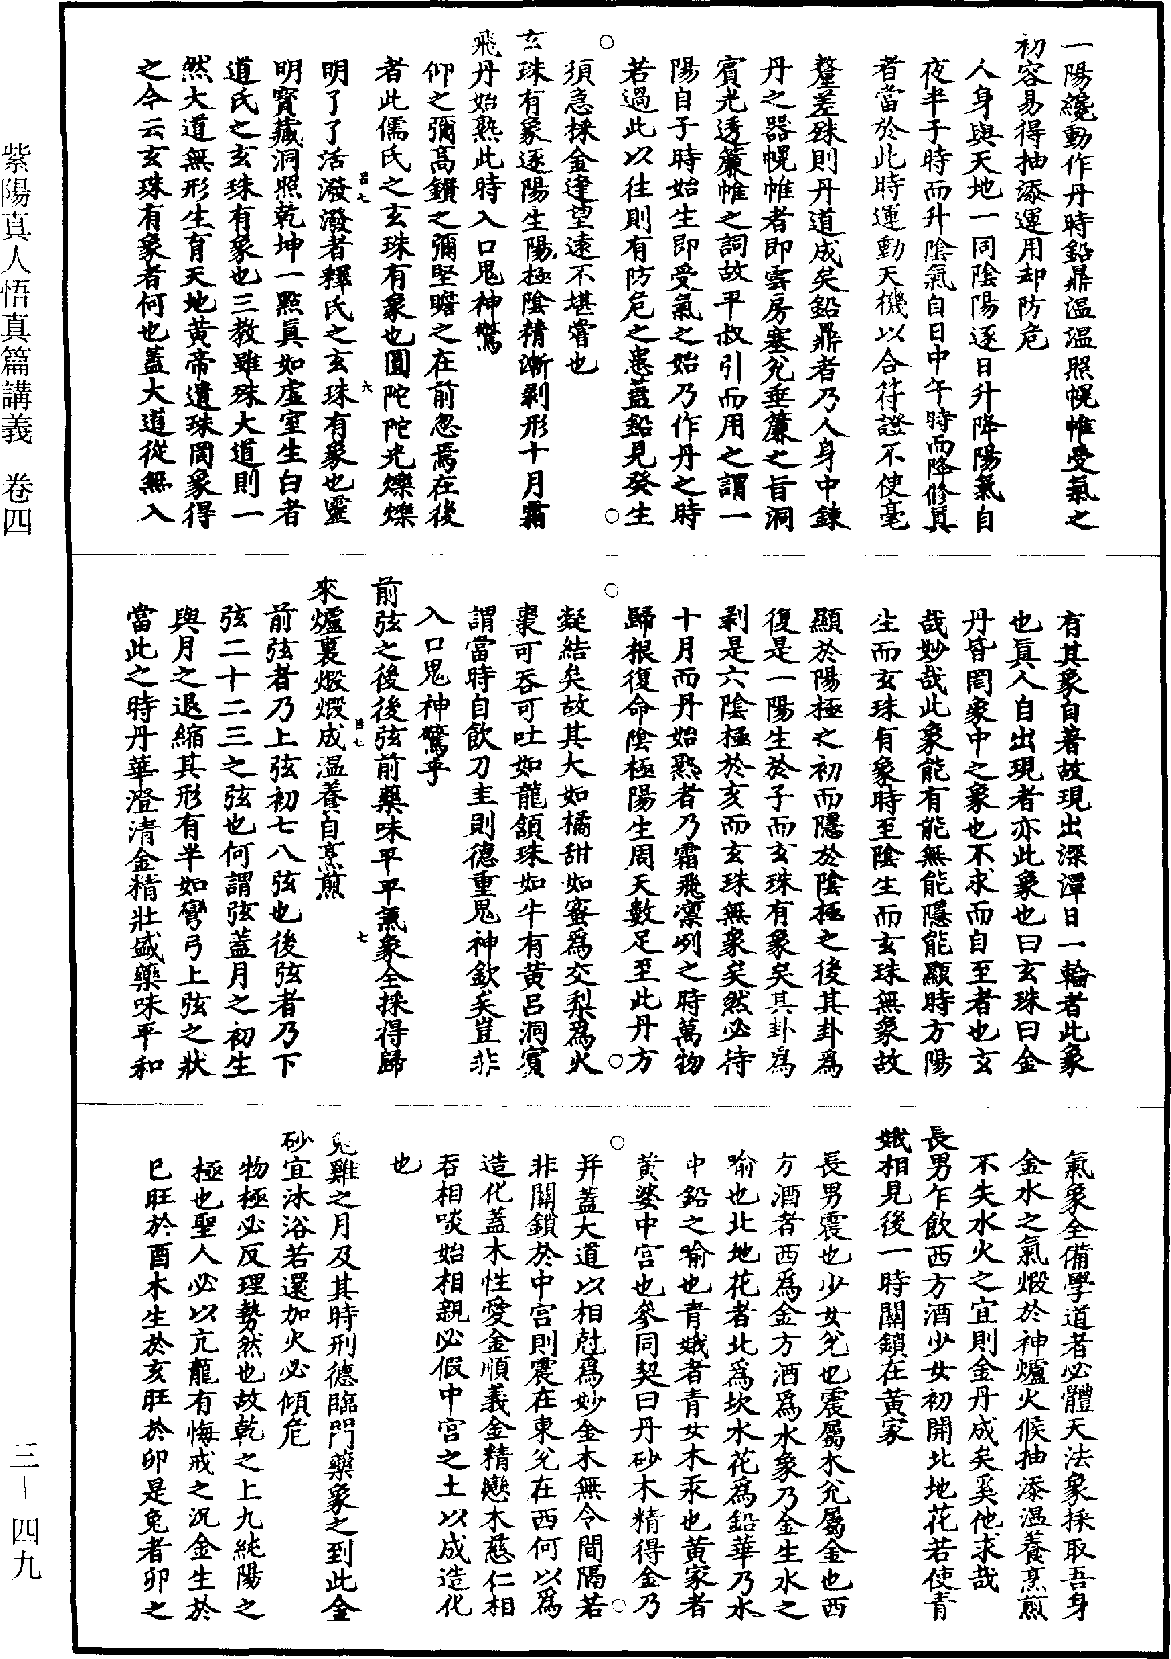 一陽纔動作丹時鉛鼎溫溫照幌帷受氣之
初容易得抽添運用却防危
人身與天地一同陰陽逐日升降陽氣自
夜半子時而升陰氣自日中午時而降修真
者當於此時運動天機以合符證不使毫
釐差殊則丹道成矣鉛鼎者乃人身中鍊
丹之器幌帷者即雲房塞兌垂簾之旨洞
賓光透簾帷之詞故平叔引而用之謂一
陽自子時始生即受氣之始乃作丹之時
若過此以往則有防危之患蓋鉛見癸生
須急採金逢望遠不堪嘗也
玄珠有象逐陽生陽極陰精漸剥形十月霜
飛丹始熟此時入口鬼神驚
仰之彌高鑽之彌堅瞻之在前忽焉在後
者此儒氏之玄珠有象也圓陀陀光爍爍
明了了活潑潑者釋氏之玄珠有象也靈
明寶藏洞照乾坤一點真如虛室生白者
道氏之玄珠有象也三教雖殊大道則一
然大道無形生育天地黄帝遺珠罔象得
之今云玄珠有象者何也蓋大道從無入
有其象自著故現出深潭日一輪者此象
也真人自出現者亦此象也曰玄珠曰金
丹皆罔象中之象也不求而自至者也玄
哉妙哉此象能有能無能隱能顯時方陽
生而玄珠有象時至陰生而玄珠無象故
顯於陽極之初而隱於陰極之後其卦為
復是一陽生於子而玄珠有象矣其卦為
剥是六陰極於亥而玄珠無象矣然必待
十月而丹始熟者乃霜飛凛冽之時萬物
歸根復命陰極陽生周天數足至此丹方
凝結矣故其大如橘甜如蜜為交梨為火
棗可吞可吐如龍頷珠如牛有黄吕洞賓
謂當時自飲刀圭則德重鬼神欽矣豈非
入口鬼神驚乎
前弦之後後弦前藥味平平氣象全採得歸
來爐裏煅煅成溫養自烹煎
前弦者乃上弦初七八弦也後弦者乃下
弦二十二三之弦也何謂弦蓋月之初生
與月之退縮其形有半如彎弓上弦之狀
當此之時丹華澄清金精壯盛藥味平和
氣象全備學道者必體天法象採取吾身
金水之氣煅於神爐火候抽添溫養烹煎
不失水火之宜則金丹成矣奚他求哉
長男乍飲西方酒少女初開北地花若使青
娥相見後一時關鎖在黄家
長男震也少女兌也震屬木兌屬金也西
方酒者西為金方酒為水象乃金生水之
喻也北地花者北為坎水花為鉛華乃水
中鉛之喻也青娥者青女木汞也黄家者
黄婆中宫也參同契曰丹砂木精得金乃
并蓋大道以相尅為妙金木無令間隔若
非關鎖於中宫則震在東兌在西何以為
造化蓋木性愛金順義金精戀木慈仁相
吞相啖始相親必假中宫之土以成造化
也
兔雞之月及其時刑德臨門藥象之到此金
砂宜沐浴若還加火必傾危
物極必反理勢然也故乾之上九純陽之
極也聖人必以亢龍有悔戒之況金生於
巳旺於酉木生於亥旺於卯是兔者卯之
百七
六
百七
七
紫陽真人悟真篇講義 卷四
三—四九